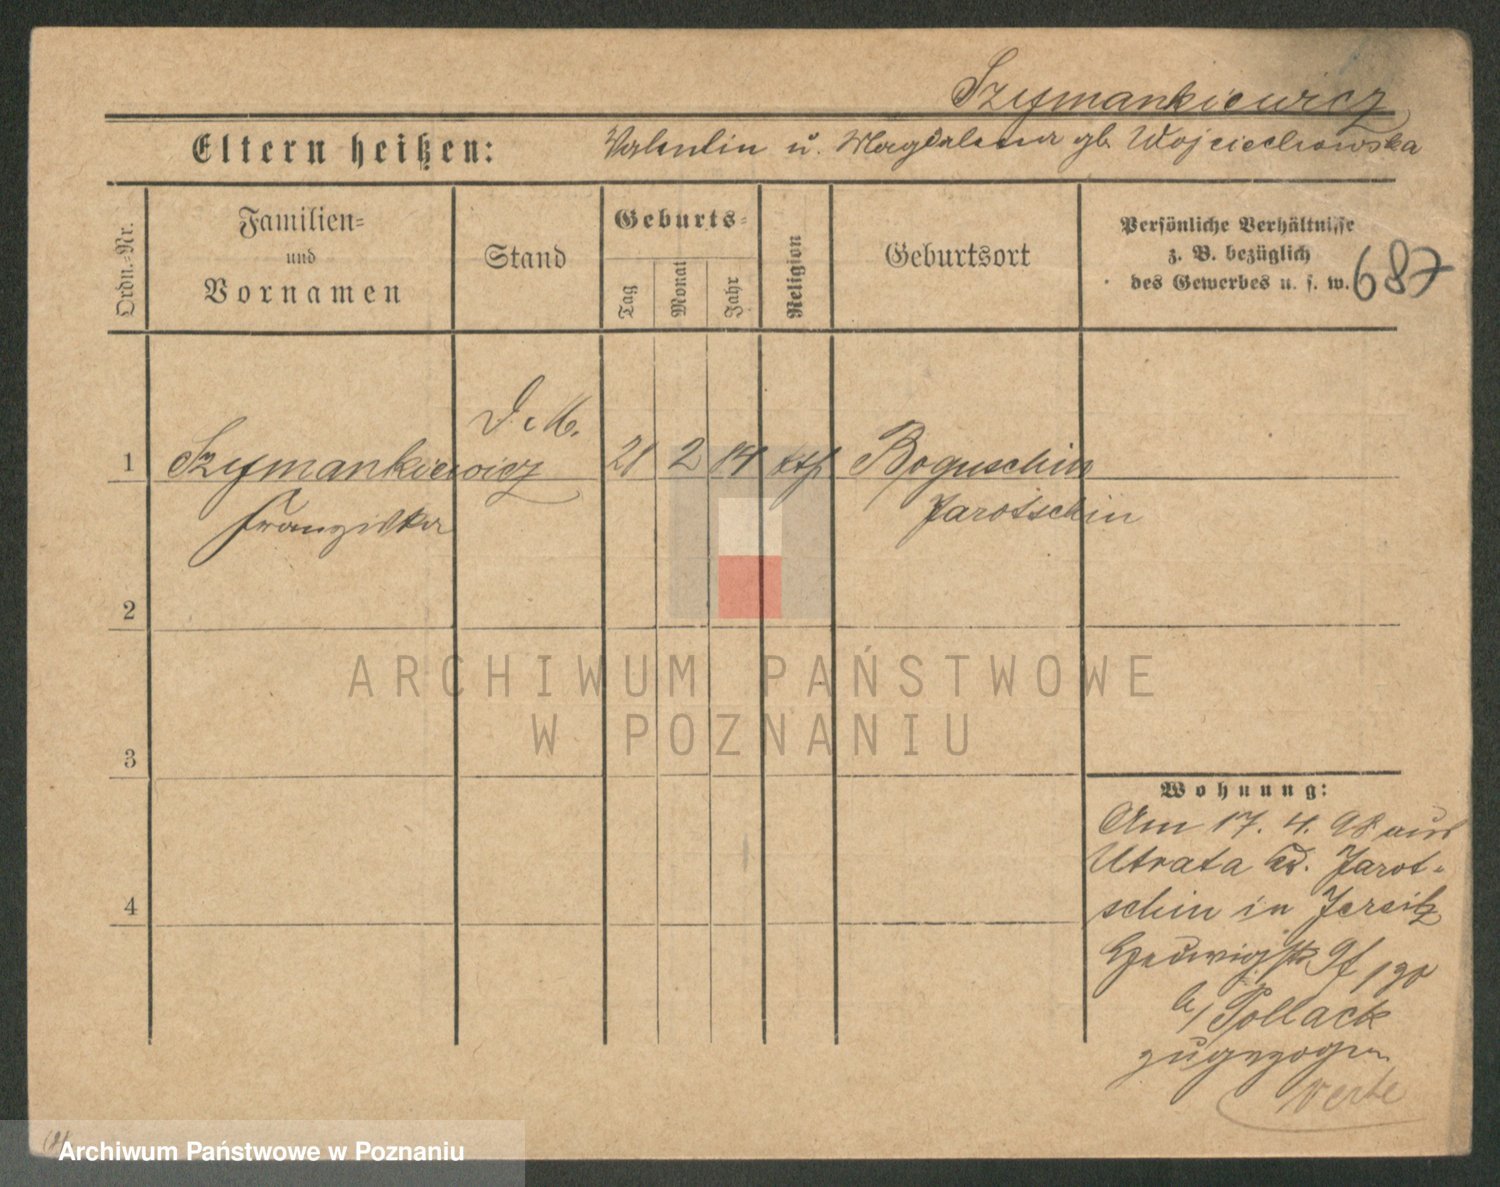 Szymankiewicz
Eltern heißen: Valentin u. Magdalena gb. Wojciechowska
Ordn.-Nr.
Familien-
und
Vornamen
Stand
Geburts-
Tag
Monat
Jahr
Religion
Geburtsort
Persönliche Verhältnisse
z. B. bezüglich
des Gewerbes u. s. w. 687
D. M.
1 Szymankiewicz 21 2 kth Boguschin
Franziska Jarotschin
2
3
4
Wohnung:
Am 17. 4. 98 aus
Utrata Kr. Jarot-
schin in Jersitz
Hedwigstr.
b/ Pollack
zugezogen
ARCHIWUM PAŃSTWOWE
W POZNANIU
Archiwum Państwowe w Poznaniu